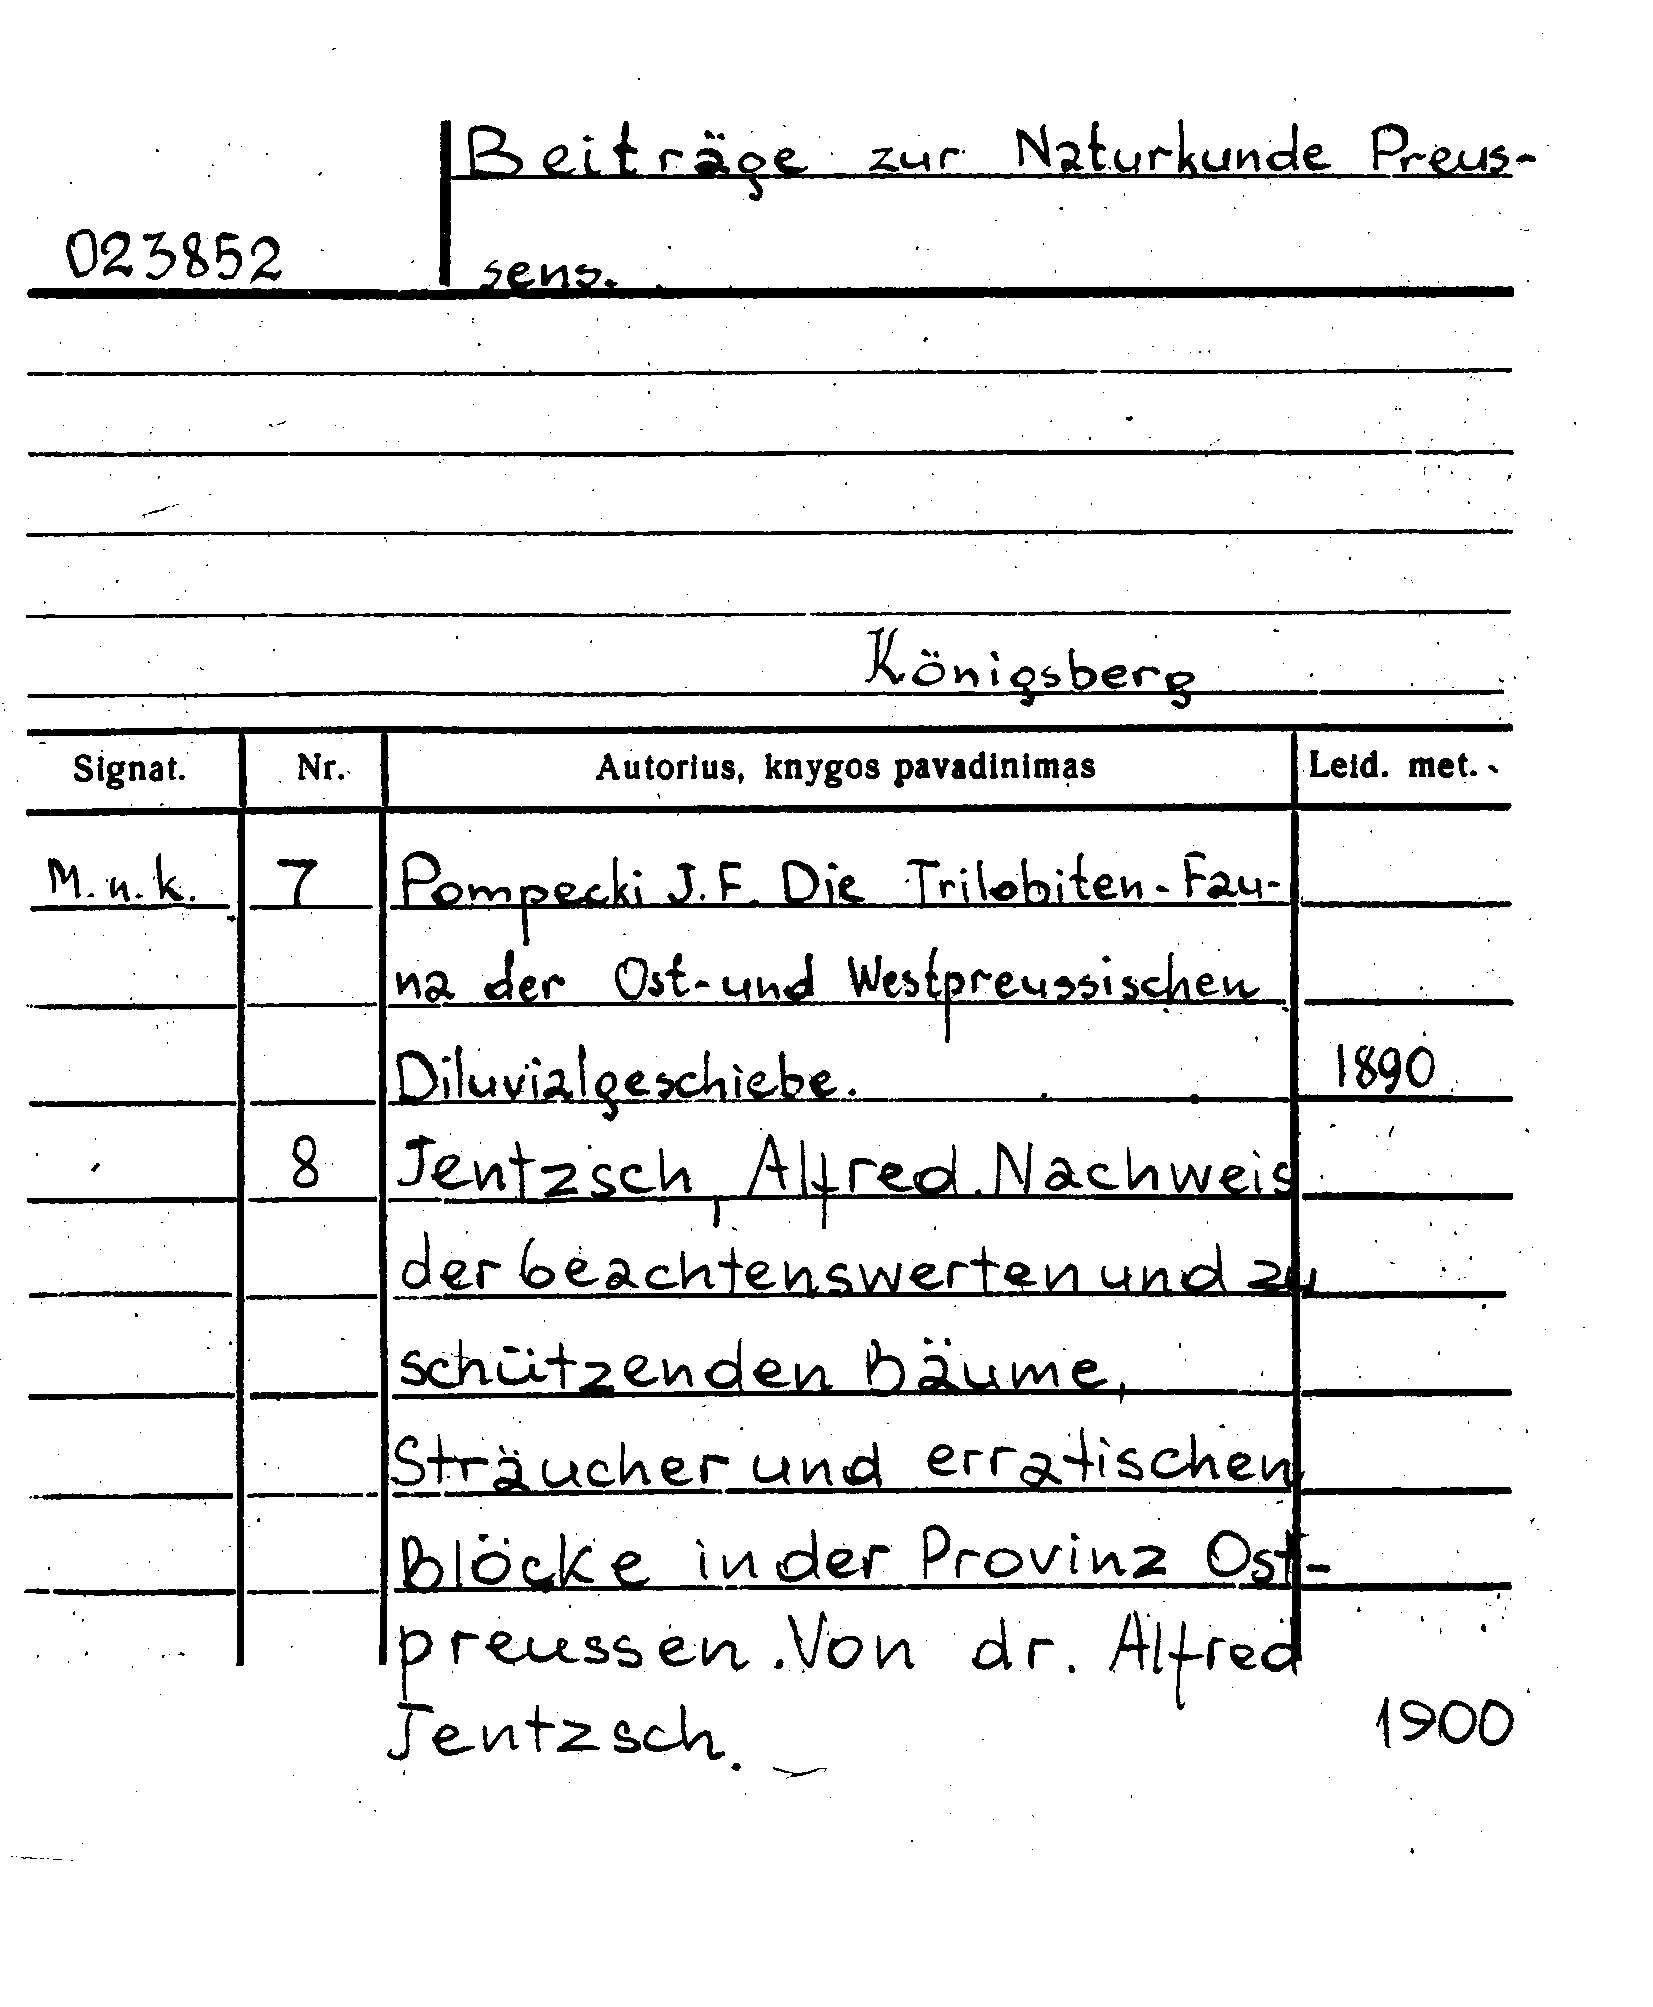 Beiträge zur Naturkunde Preus-
023852 sens.
Königsberg
Signat. Nr. Autorius, knygos pavadinimas Leid. met.
M.n.k. 7 Pompecki J.F. Die Trilobiten-Fau-
na der Ost-und Westpreussischen
Diluvialgeschiebe. 1890
8 Jentzsch, Alfred. Nachweis
der beachtenswerten und zu
schützenden Bäume,
Sträucher und erratischen
Blöcke in der Provinz Ost-
preussen. Von dr. Alfred
Jentzsch. 1900